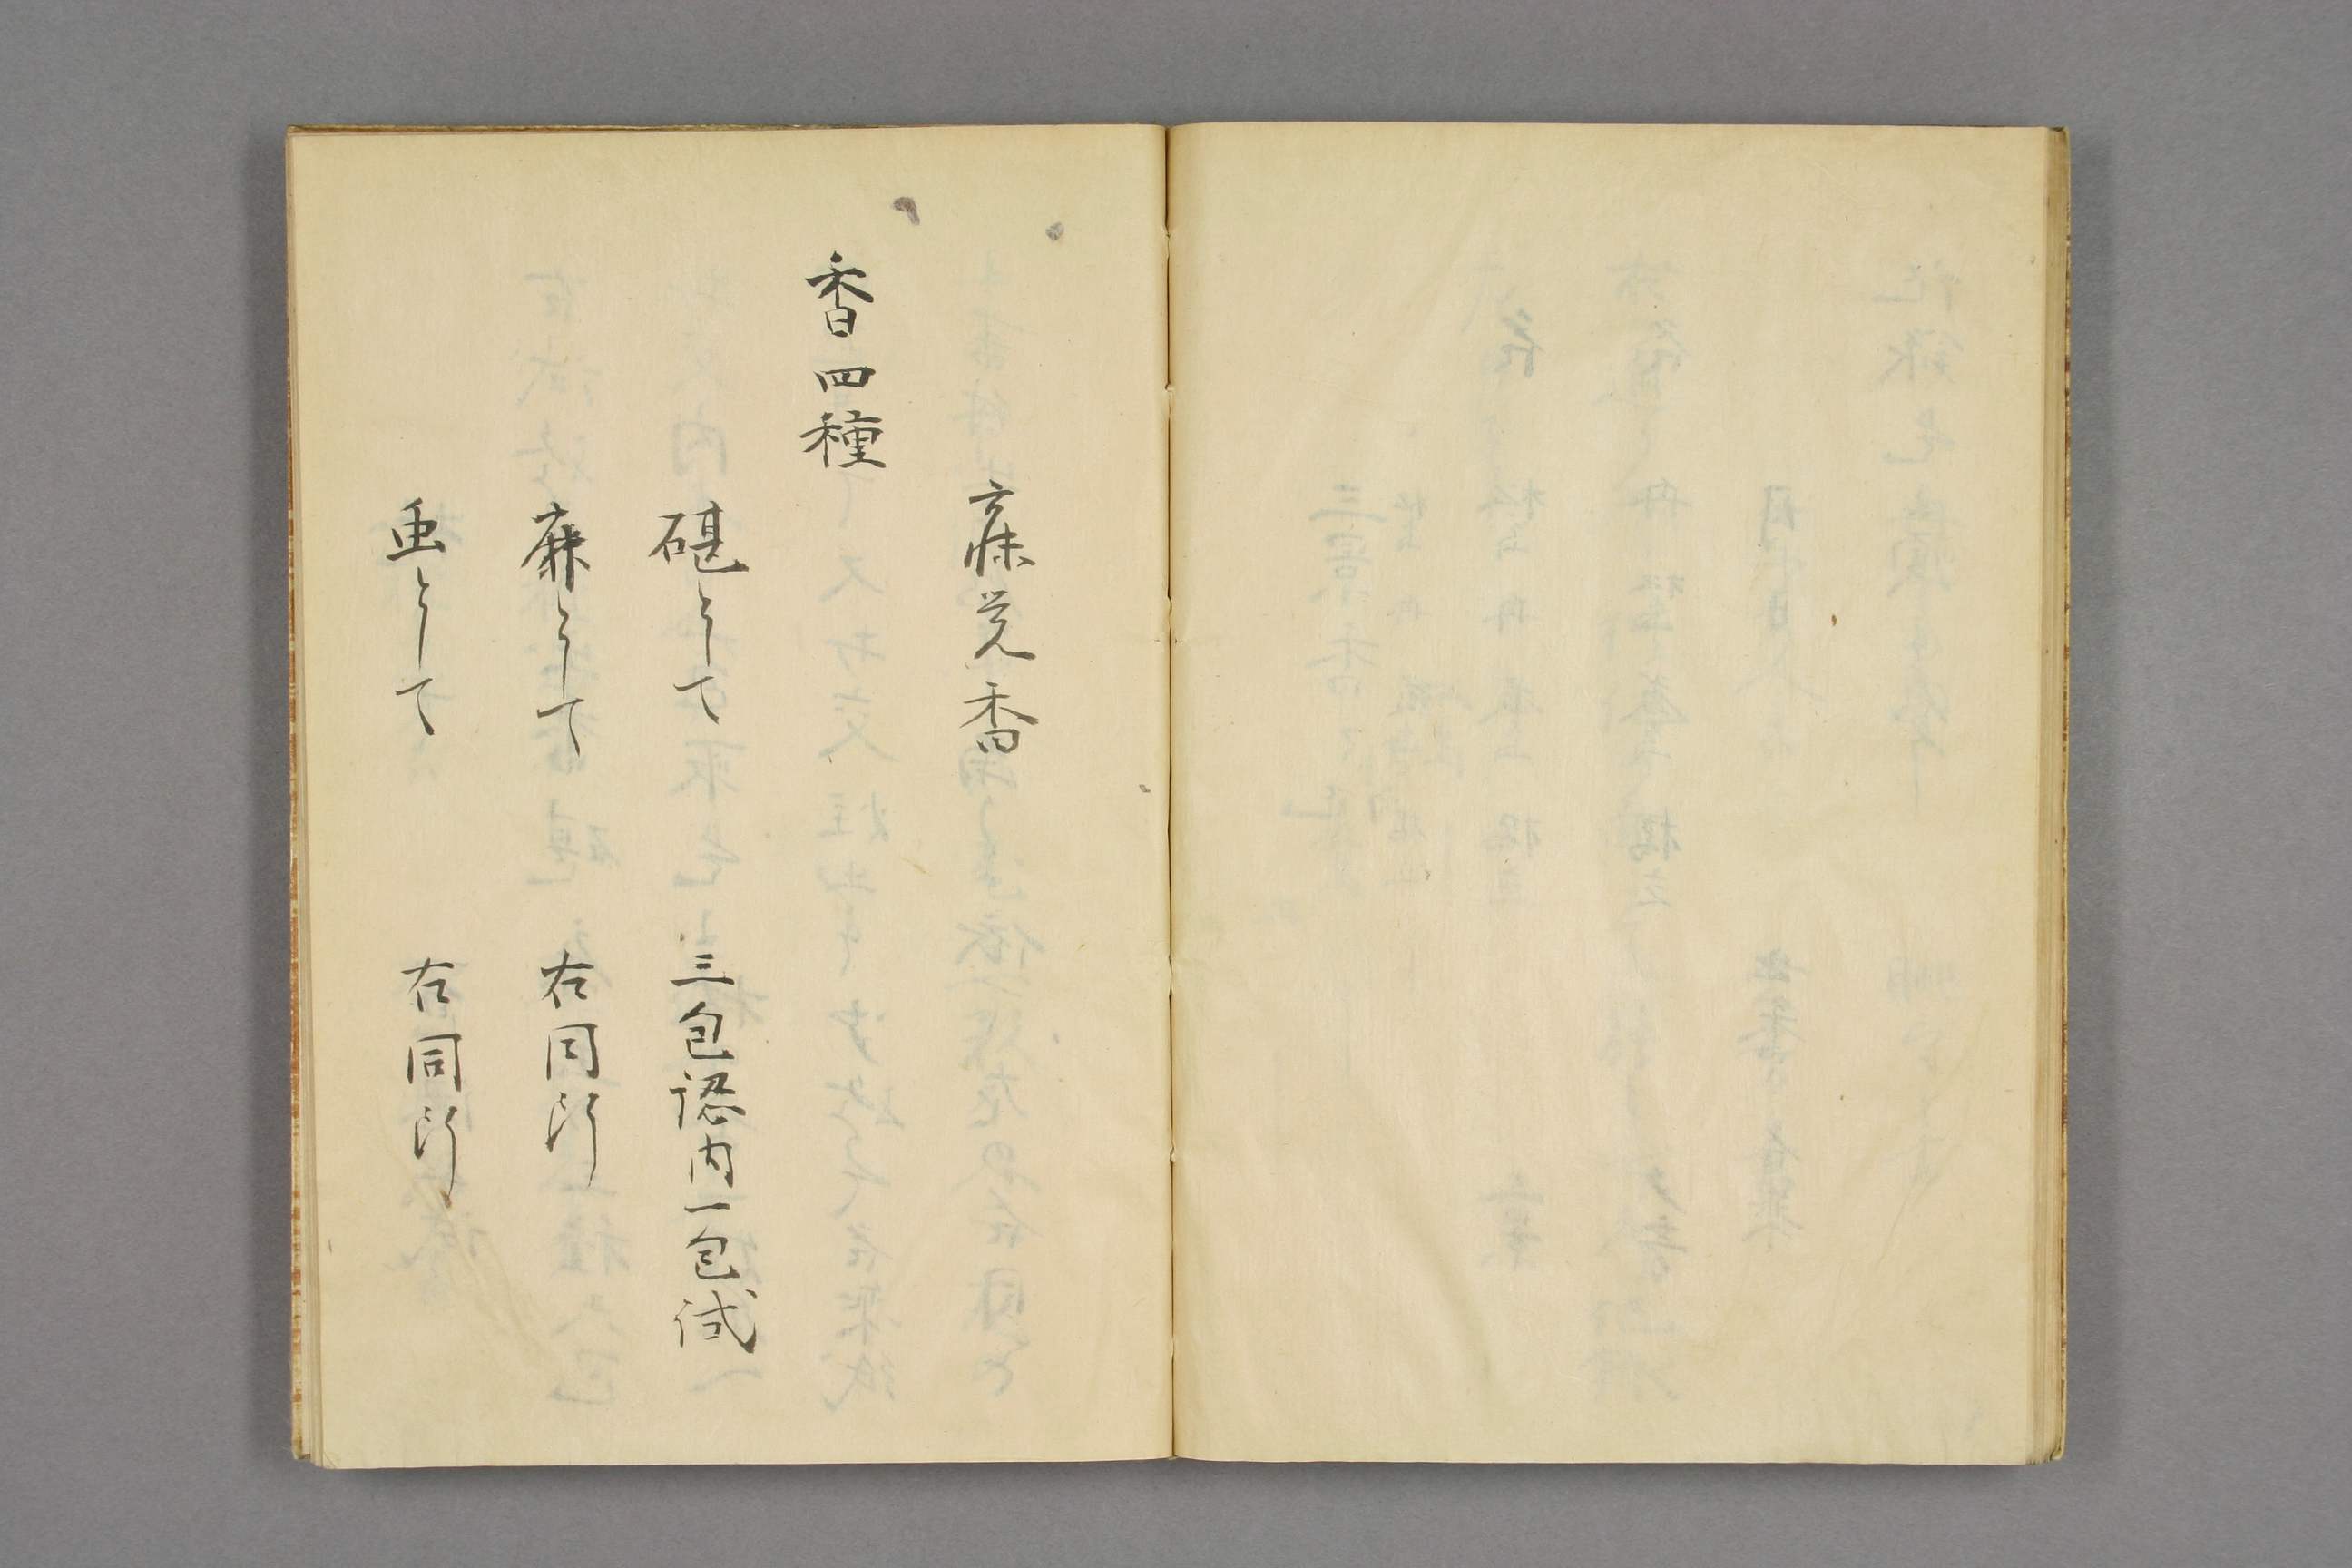 寐覚香
香四種
碪として 三包認内一包試
として 右同断
虫として 右同断